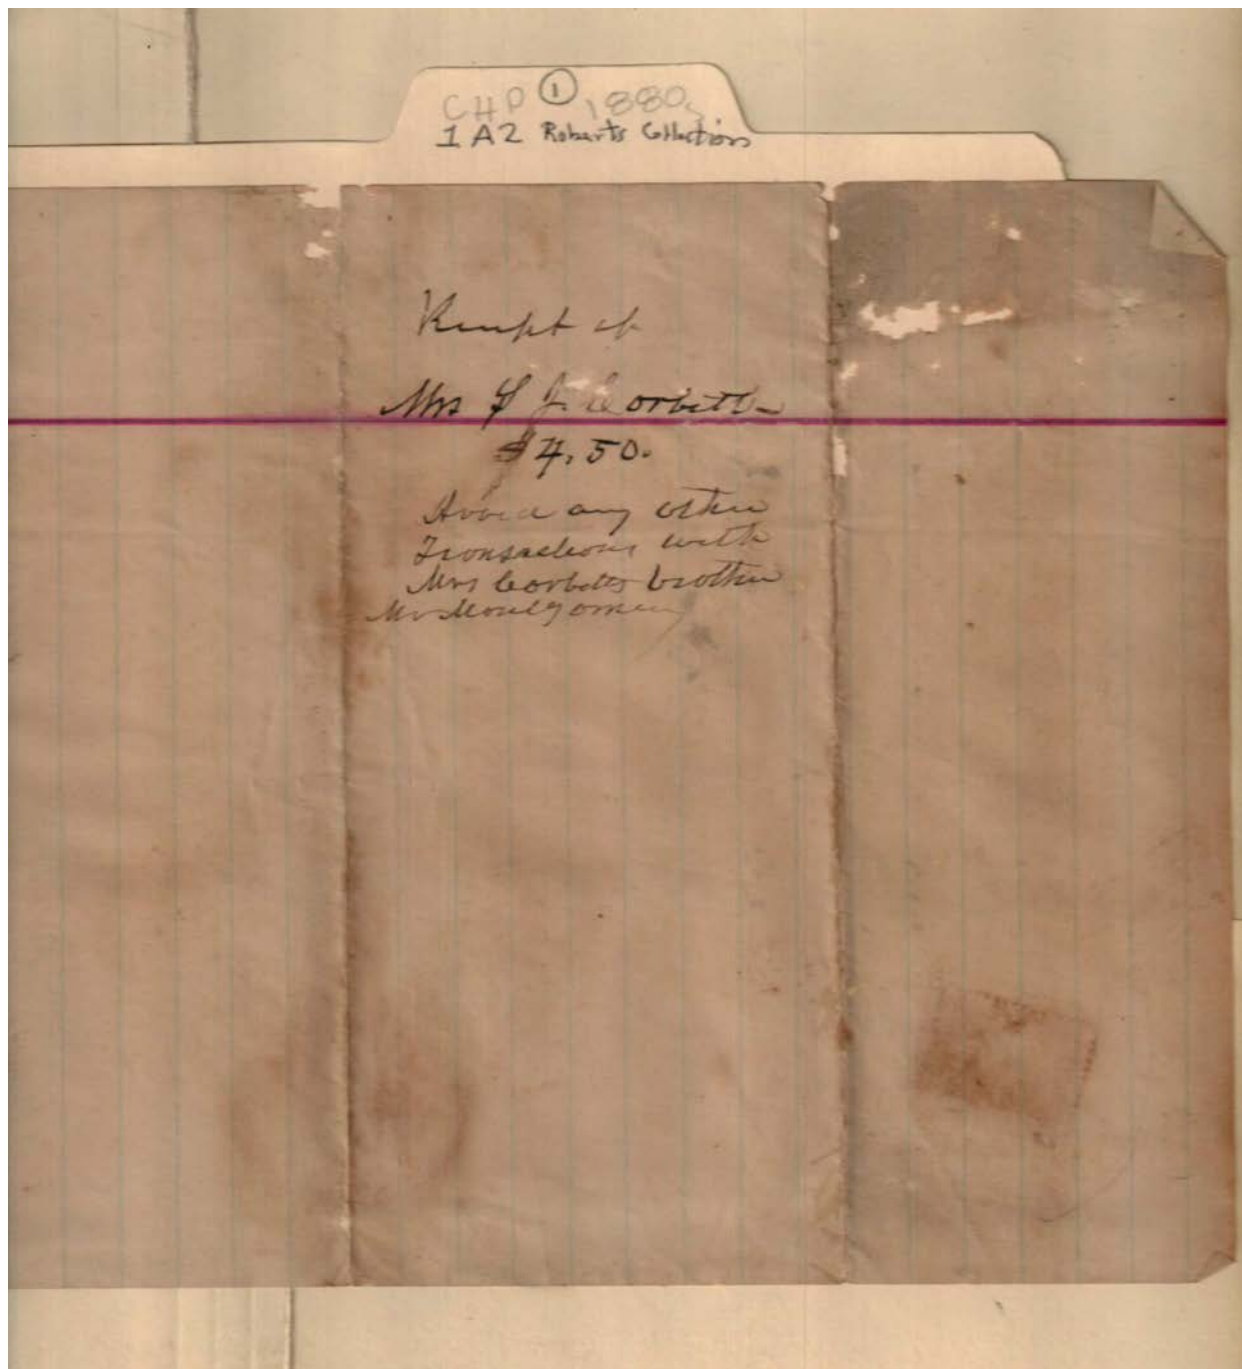 CHP ① 1880s
1A2 Roberts Collection
Receipt of
Mrs S J. Corbett
$4.50.
Avoid any other
Transactions with
Mrs Corbetts brother
Mr Montgomery